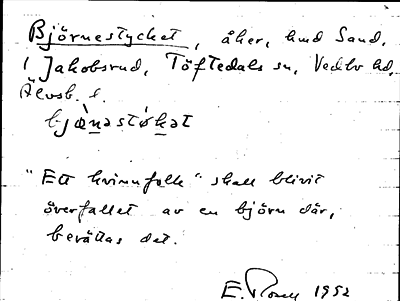 Björnestycket, åker, hmd Sand,
i Jakobsrud, Töftedals sn, Vedbo hd,
Älvsb. l.
bjø̀ṇəstøkət
"Ett kvinnfolk" skall blivit
överfallet av en björn där,
berättas det.
E. Rosell 1952